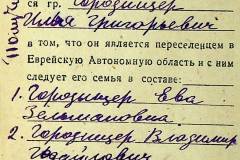 ся гр. Городищер
Илья Григорьевич
в том, что он является переселенцем в
Еврейскую Автономную область и с ним
следует его семья в составе:
1. Городищер Ева
Зельмановна
2. Городищер Владимир